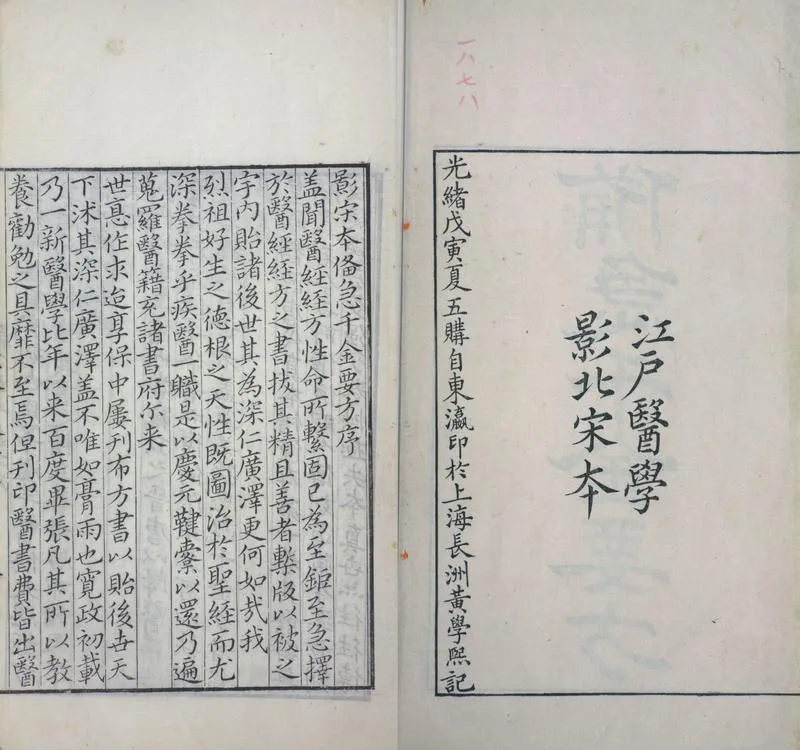 一八七八
江戶醫學
影北宋本
光緒戊寅夏五購自東瀛印於上海長洲黃學熙記
影宋本俻急千金要方序
盖聞醫經經方性命所繫固已為至鉅至急擇
於醫經經方之書拔其精且善者槧版以被之
宇內貽諸後世其為深仁廣澤更何如㢤我
烈祖好生之德根之天性既圖治於聖經而尤
深拳拳乎疾醫一職是以慶元鞬櫜以還乃遍
蒐羅醫籍充諸書府尓来
世悳作求迨享保中屢刊布方書以貽後世天
下沭其深仁廣澤盖不唯如膏雨也寛政初載
乃一新醫學比年以来百度畢張凡其所以教
養勸勉之具靡不至焉但刊印醫書費皆出醫